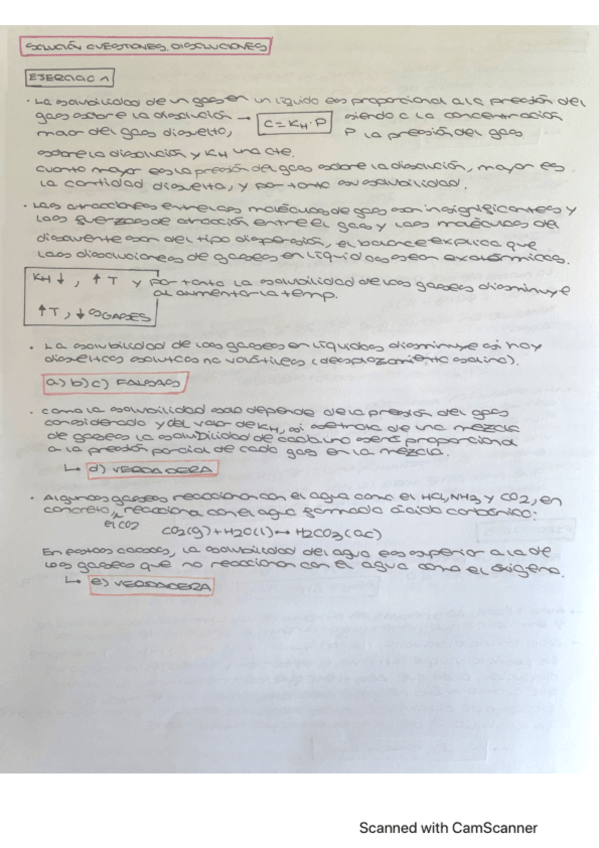 SOLUCIÓN CUESTIONES DISOLUCIONES
EJERCICIO 1
· La solubilidad de un gas en un líquido es proporcional a la presión del
gas sobre la disolución → C = KH · P siendo C la concentración
mayor del gas disuelto, P la presión del gas
sobre la disolución y KH una cte.
Cuanto mayor es la presión del gas sobre la disolución, mayor es
la cantidad disuelta, y por tanto su solubilidad.
· Las atracciones entre las moléculas de gas son insignificantes y
las fuerzas de atracción entre el gas y las moléculas del
disolvente son del tipo dispersión, el balance explica que
las disoluciones de gases en líquidos sean exotérmicas.
KH ↓, ↑ T y por tanto la solubilidad de los gases disminuye
al aumentar la temp.
↑ T, ↓ SGASES
· La solubilidad de los gases en líquidos disminuye si hay
disueltos solutos no volátiles (desplazamiento salino).
a) b) c) FALSAS
· Como la solubilidad solo depende de la presión del gas
considerado y del valor de KH, si se trata de una mezcla
de gases la solubilidad de cada uno será proporcional
a la presión parcial de cada gas en la mezcla.
↳ d) VERDADERA
· Algunos gases reaccionan con el agua como el HCl, NH3 y CO2, en
concreto, el CO2 reacciona con el agua formando ácido carbónico:
CO2(g) + H2O(l) → H2CO3(ac)
En estos casos, la solubilidad del agua es superior a la de
los gases que no reaccionan con el agua como el oxígeno.
↳ e) VERDADERA
Scanned with CamScanner